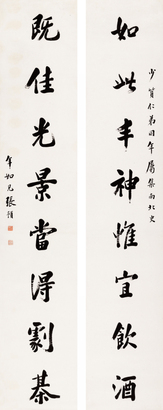 如此丰神惟宜飲酒
少質仁弟同年屬集南北史
既佳光景當得劇棊
年如兄張謇